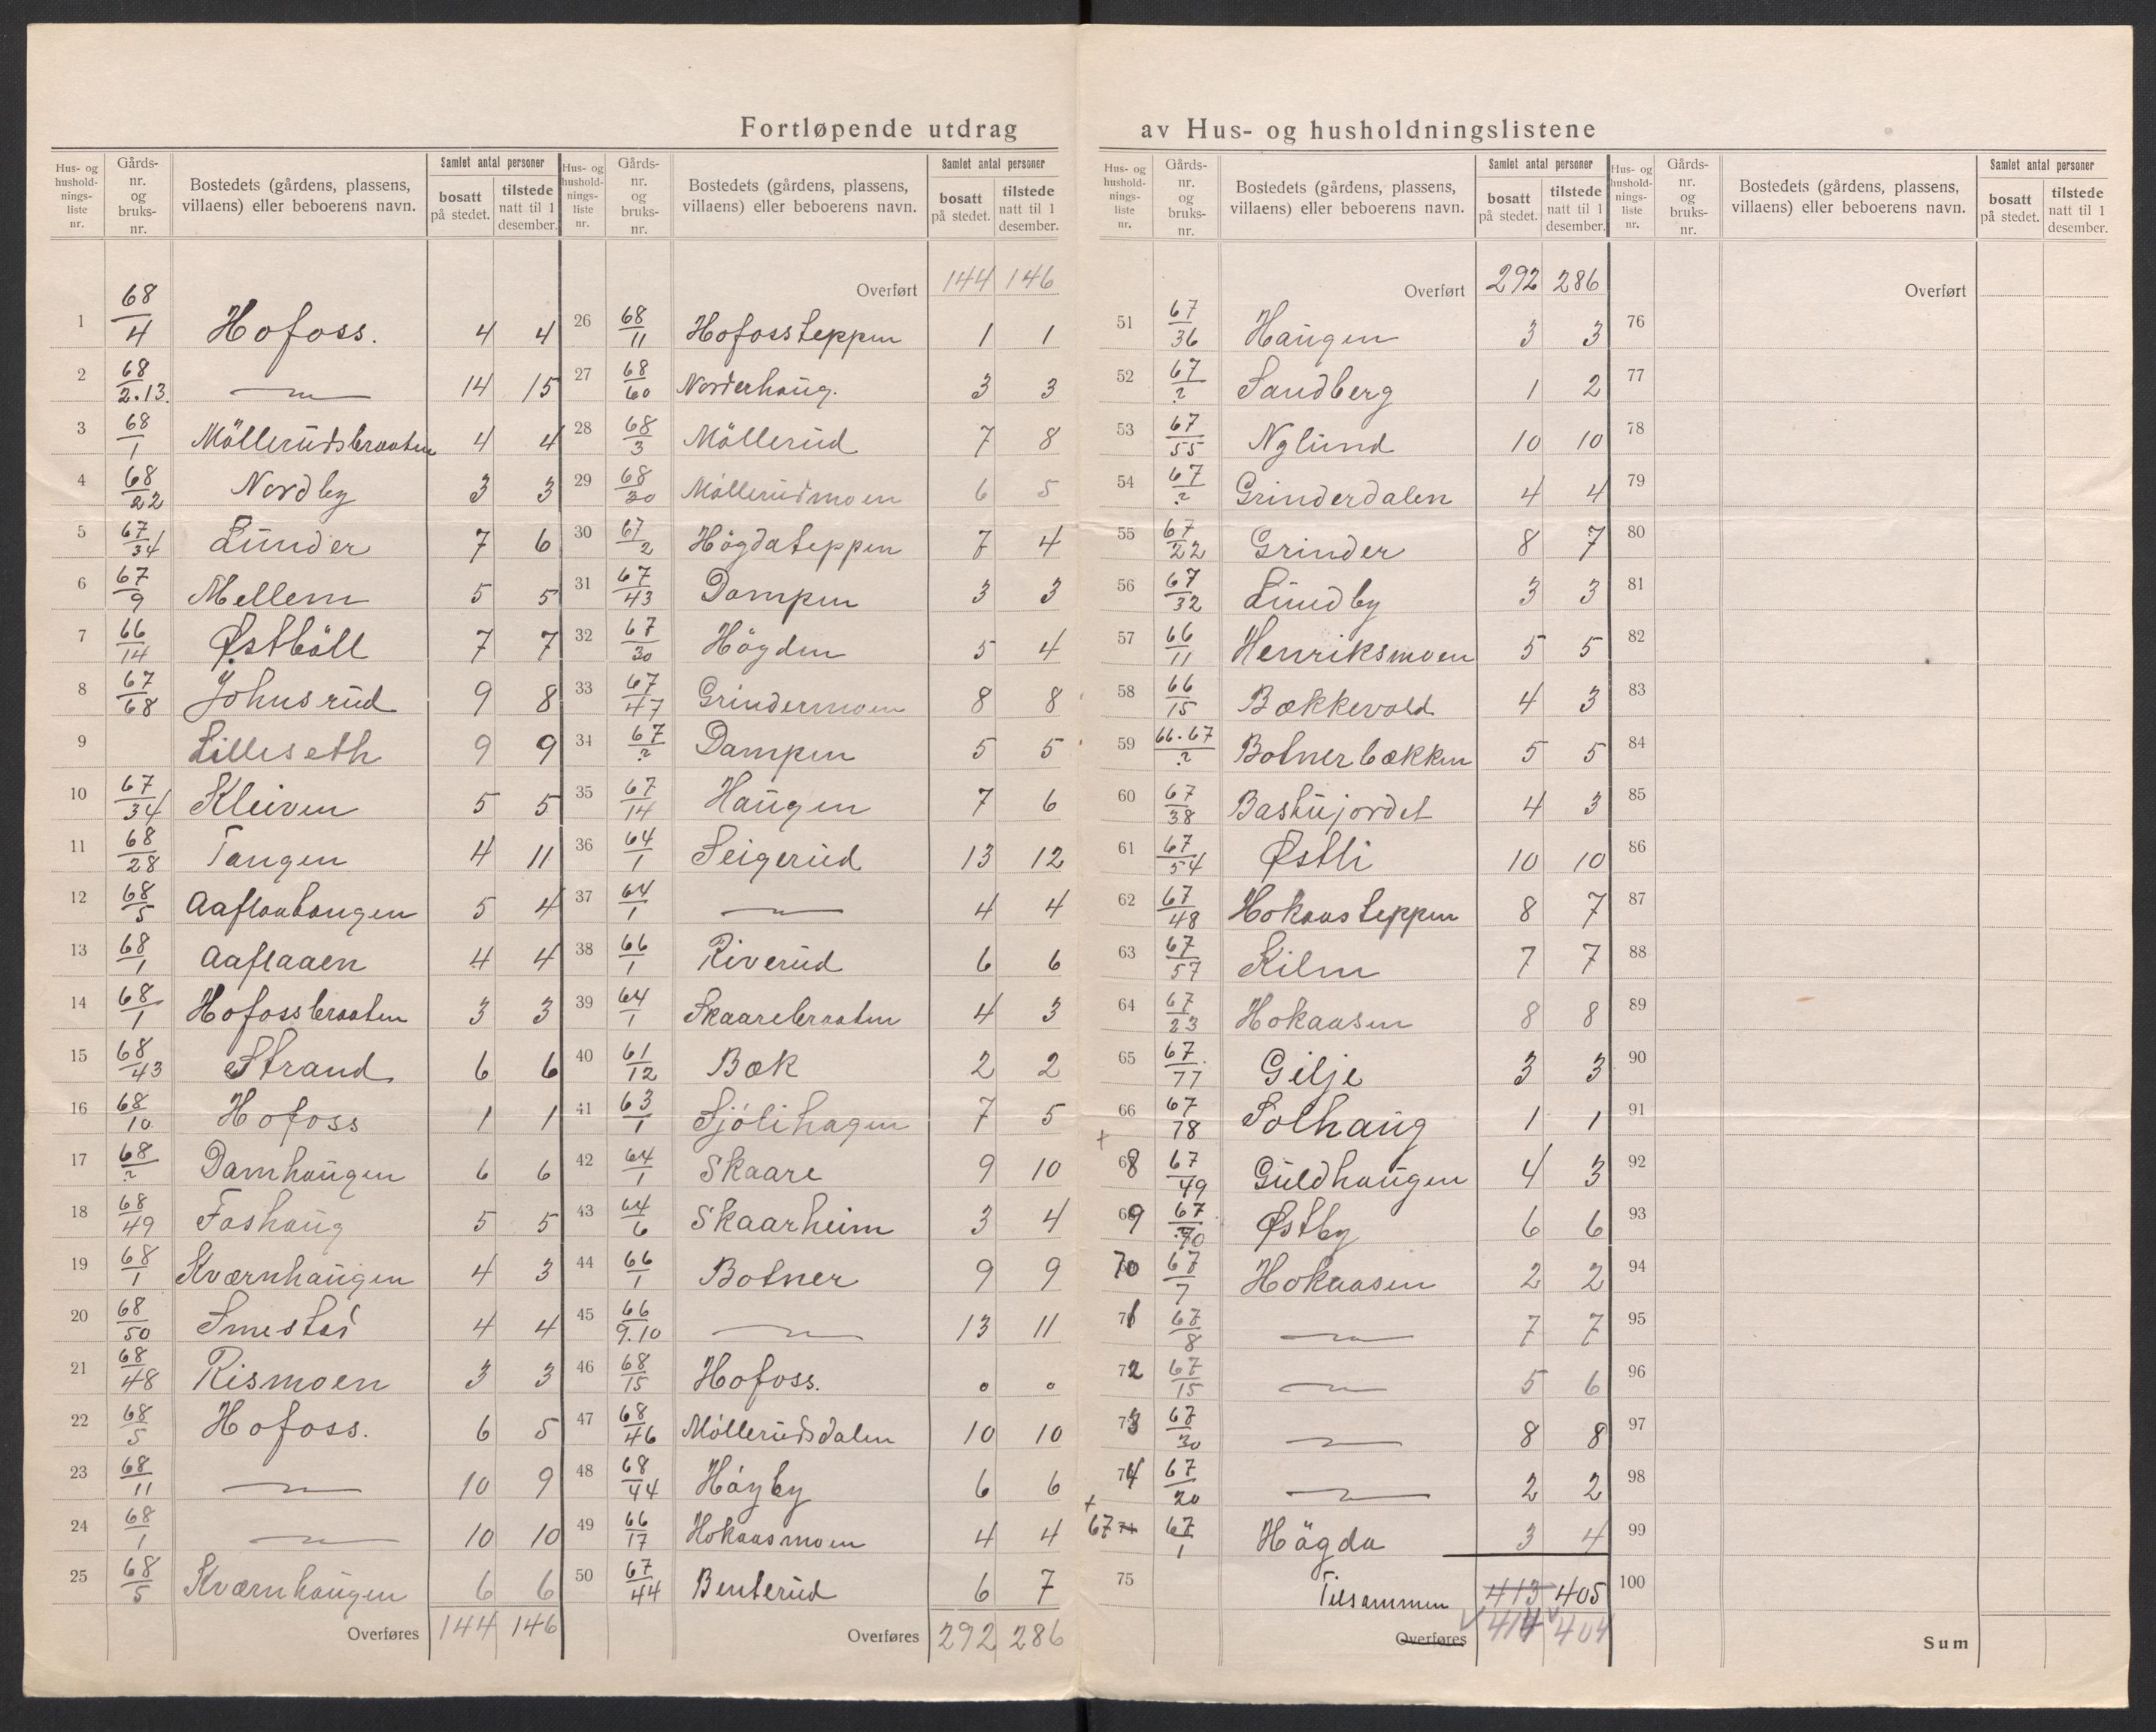 Fortløpende utdrag av Hus- og husholdningslistene
Hus- og husholdnings-liste nr. | Gårds-nr. og bruks-nr. | Bostedets (gårdens, plassens, villaens) eller beboerens navn. | Samlet antal personer bosatt på stedet. | tilstede natt til 1 desember.
1 68/4 Hofoss. 4 4
2 68/2.13. — 14 15
3 68/1 Möllerudsbraaten 4 4
4 68/22 Nordby 3 3
5 67/34 Lunder 7 6
6 67/9 Mellem 5 5
7 66/14 Østböll 7 7
8 67/68 Johnsrud 9 8
9 Lilleseth 9 9
10 67/34 Kleiven 5 5
11 68/28 Tangen 4 11
12 68/5 Aaflaatangen 5 4
13 68/1 Aaflaaen 4 4
14 68/1 Hofossbraaten 3 3
15 68/43 Strand 6 6
16 68/10 Hofoss 1 1
17 68/? Damhaugen 6 6
18 68/49 Foshaug 5 5
19 68/1 Kværnhaugen 4 3
20 68/50 Smestad 4 4
21 68/48 Rismoen 3 3
22 68/5 Hofoss. 6 5
23 68/11 — 10 9
24 68/1 — 10 10
25 68/5 Kværnhaugen 6 6
Overføres 144 146
Hus- og husholdnings-liste nr. | Gårds-nr. og bruks-nr. | Bostedets (gårdens, plassens, villaens) eller beboerens navn. | Samlet antal personer bosatt på stedet. | tilstede natt til 1 desember.
Overført 144 146
26 68/11 Hofossteppen 1 1
27 68/60 Norderhaug. 3 3
28 68/3 Möllerud 7 8
29 68/30 Möllerudmoen 6 5
30 67/2 Högdateppen 7 4
31 67/43 Dampen 3 3
32 67/30 Högden 5 4
33 67/47 Grindermoen 8 8
34 67/? Dampen 5 5
35 67/14 Haugen 7 6
36 64/1 Seigerud 13 12
37 64/1 — 4 4
38 66/1 Riverud 6 6
39 64/1 Skaarebraaten 4 3
40 61/12 Bæk 2 2
41 63/1 Sjölihagen 7 5
42 64/1 Skaare 9 10
43 64/6 Skaarheim 3 4
44 66/1 Botner 9 9
45 66/9.10 — 13 11
46 68/15 Hofoss. 0 0
47 68/46 Möllerudsdalen 10 10
48 68/44 Höyby 6 6
49 66/17 Hokaasmoen 4 4
50 67/44 Benterud 6 7
Overføres 292 286
Hus- og husholdnings-liste nr. | Gårds-nr. og bruks-nr. | Bostedets (gårdens, plassens, villaens) eller beboerens navn. | Samlet antal personer bosatt på stedet. | tilstede natt til 1 desember.
Overført 292 286
51 67/36 Haugen 3 3
52 67/? Sandberg 1 2
53 67/55 Nylund 10 10
54 67/? Grinderdalen 4 4
55 67/22 Grinder 8 7
56 67/32 Lundby 3 3
57 66/11 Henriksmoen 5 5
58 66/15 Bækkevold 4 3
59 66.67/? Botnerbækken 5 5
60 67/38 Bastujordet 4 3
61 67/54 Østli 10 10
62 67/48 Hokaasteppen 8 7
63 67/57 Kilm 7 7
64 67/23 Hokaasen 8 8
65 67/77 Gilje 3 3
66 67/78 Solhaug 1 1
+
68 67/49 Guldhaugen 4 3
69 67/70 Østby 6 6
70 67/7 Hokaasen 2 2
71 67/8 — 7 7
72 67/15 — 5 6
73 67/30 — 8 8
74 67/20 — 2 2
+
67 74 67/1 Högda 3 4
75 Tilsammen 413 405
Overføres 414 404
Hus- og husholdnings-liste nr. | Gårds-nr. og bruks-nr. | Bostedets (gårdens, plassens, villaens) eller beboerens navn. | Samlet antal personer bosatt på stedet. | tilstede natt til 1 desember.
Overført
76
77
78
79
80
81
82
83
84
85
86
87
88
89
90
91
92
93
94
95
96
97
98
99
100
Sum